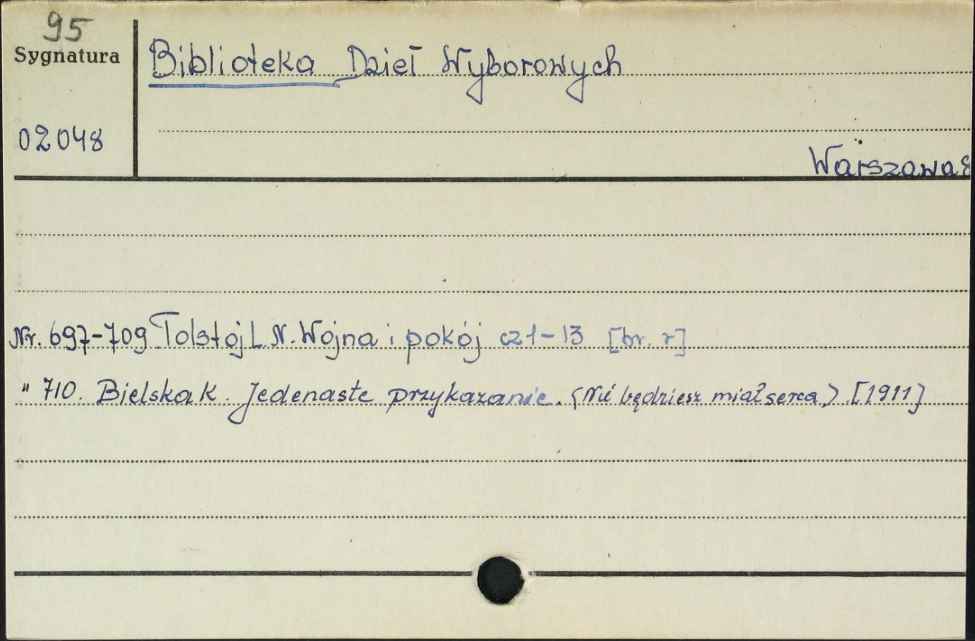 95
Sygnatura
Biblioteka Dzieł Wyborowych
02048
Warszawa
Nr. 697-709 Tolstoj L N. Wojna i pokój cz 1-13 [br. r]
" 710. Bielska K. Jedenaste przykazanie. (Nie będziesz miał serca) [1911]